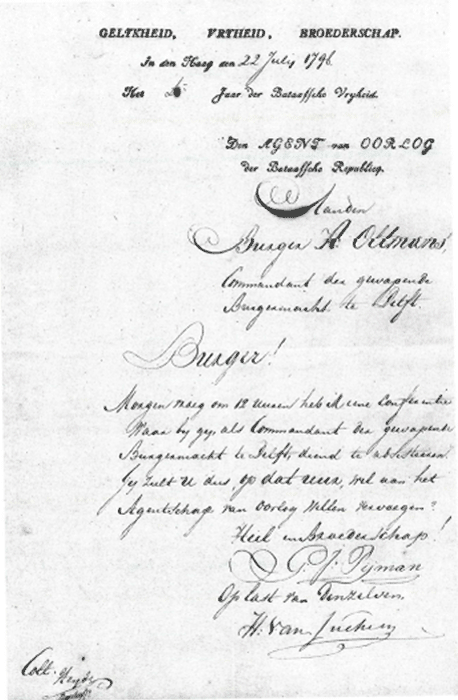 GELYKHEID, VRYHEID, BROEDERSCHAP.
In den Haag den 22 July 1798
Het Jaar der Bataafsche Vryheid.
Den AGENT van OORLOG
der Bataafsche Republicq.
Aan den
Burger A: Oltmans,
Commandant der gewapende
Burgermacht te Delft
Burger!
Morgen vroeg om 12 uuren heb ik eene Conferentie
Waar by gy, als Commandant der gewapende
Burgermacht te Delft, diend te adsisteeren.
Gy zult U dus, op dat uur, wel aan het
Agentschap van Oorlog willen vervoegen?
Heil en Broederschap!
G. J: Pyman
Op last van Denzelven
H: Van
Coll: